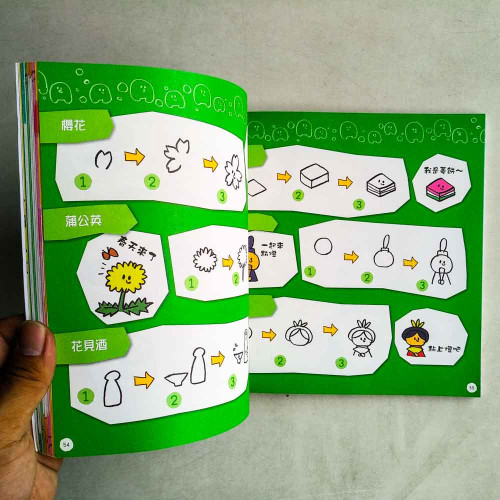 櫻花
1
2
3
蒲公英
春天來了
1
2
花見酒
1
2
3
54
2
3
我是菱餅~
一起來
1
2
3
2
3
55